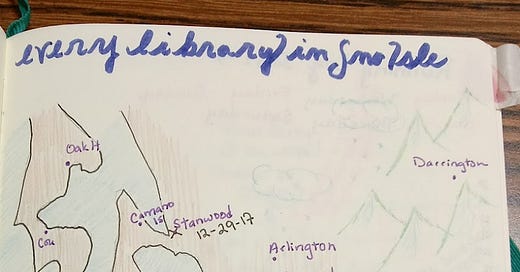 every library in Sno Isle
Oak H
Darrington
Camano
Is
Stanwood
12-29-17
Cou
Arlington